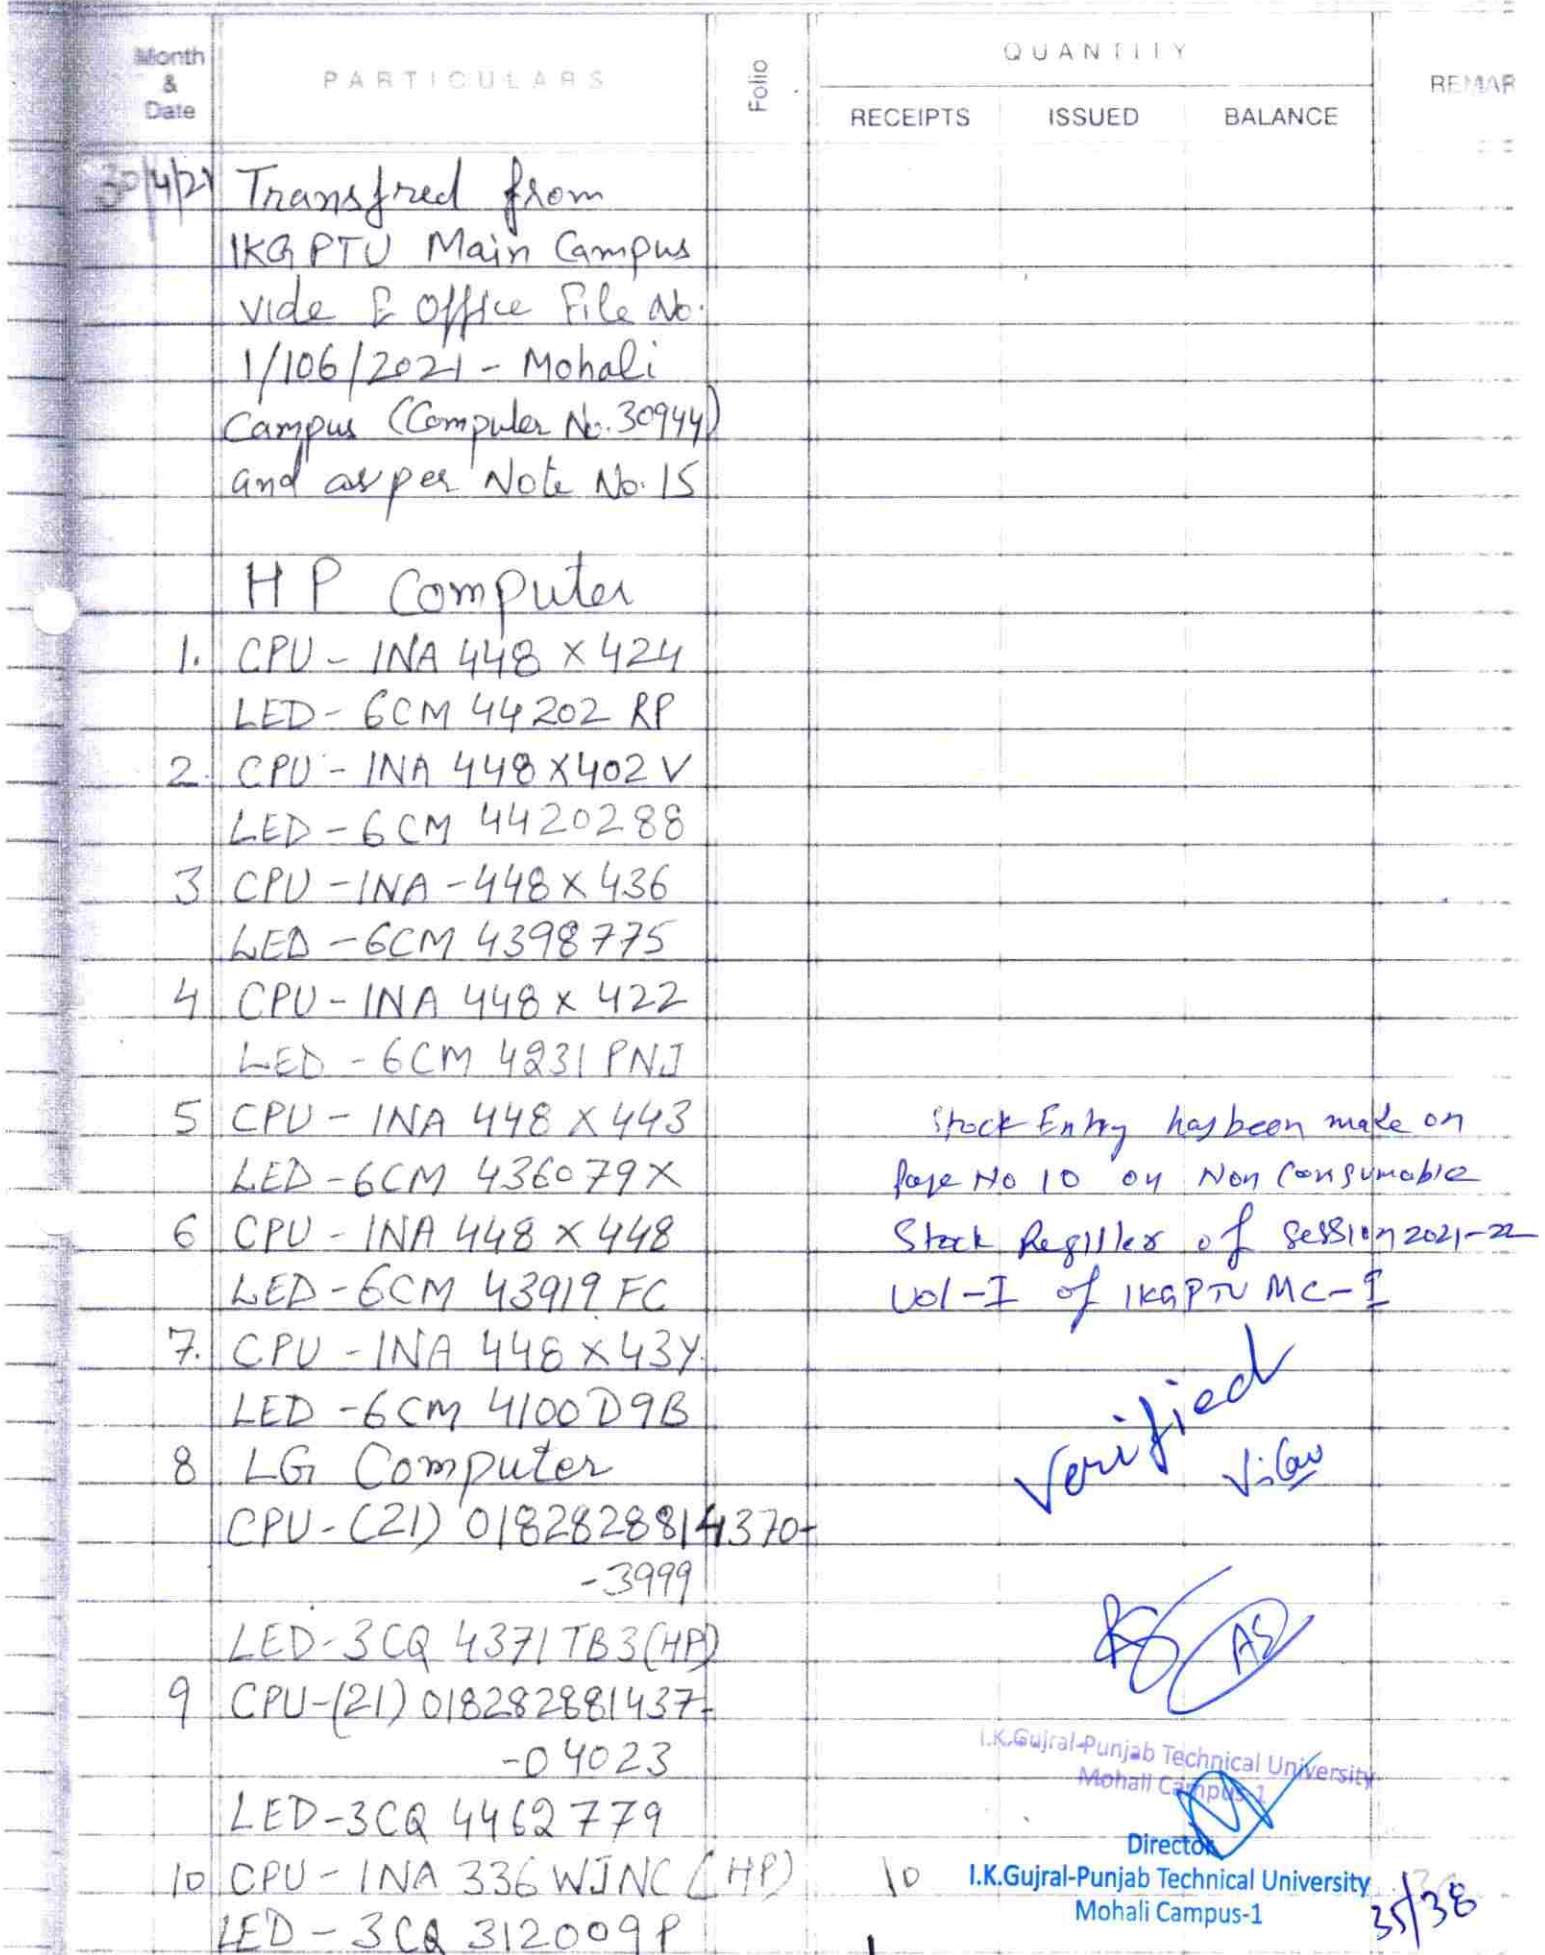 Month & Date
PARTICULARS
Folio
QUANTITY
RECEIPTS ISSUED BALANCE
REMAR
30/4/21 Transfred from
IKGPTU Main Campus
vide E Office File No.
1/106/2021 - Mohali
Campus (Computer No. 30944)
and as per Note No. 15
HP Computer
1. CPU - INA 448 X 424
LED - 6CM 44202 RP
2. CPU - INA 448 X402 V
LED - 6CM 4420288
3 CPU - INA - 448 X 436
LED - 6CM 4398775
4 CPU - INA 448 X 422
LED - 6CM 4231 PNJ
5 CPU - INA 448 X 443
LED - 6CM 436079X
6 CPU - INA 448 X 448
LED - 6CM 43919 FC
7. CPU - INA 448 X 43Y
LED - 6CM 4100D9B
8 LG Computer
CPU - (21) 0182828814370-
-3999
LED - 3CQ 4371TB3(HP)
9 CPU - (21) 018282881437-
-04023
LED - 3CQ 4462779
10 CPU - INA 336 WJNC (HP) 10
LED - 3CQ 312009P
Stock Entry has been make on
Page No 10 on Non Consumable
Stock Register of Session 2021-22
Vol-I of IKGPTU MC-I
Verified
AS
I.K.Gujral-Punjab Technical University
Mohali Campus-1
Director
I.K.Gujral-Punjab Technical University
Mohali Campus-1
35/38